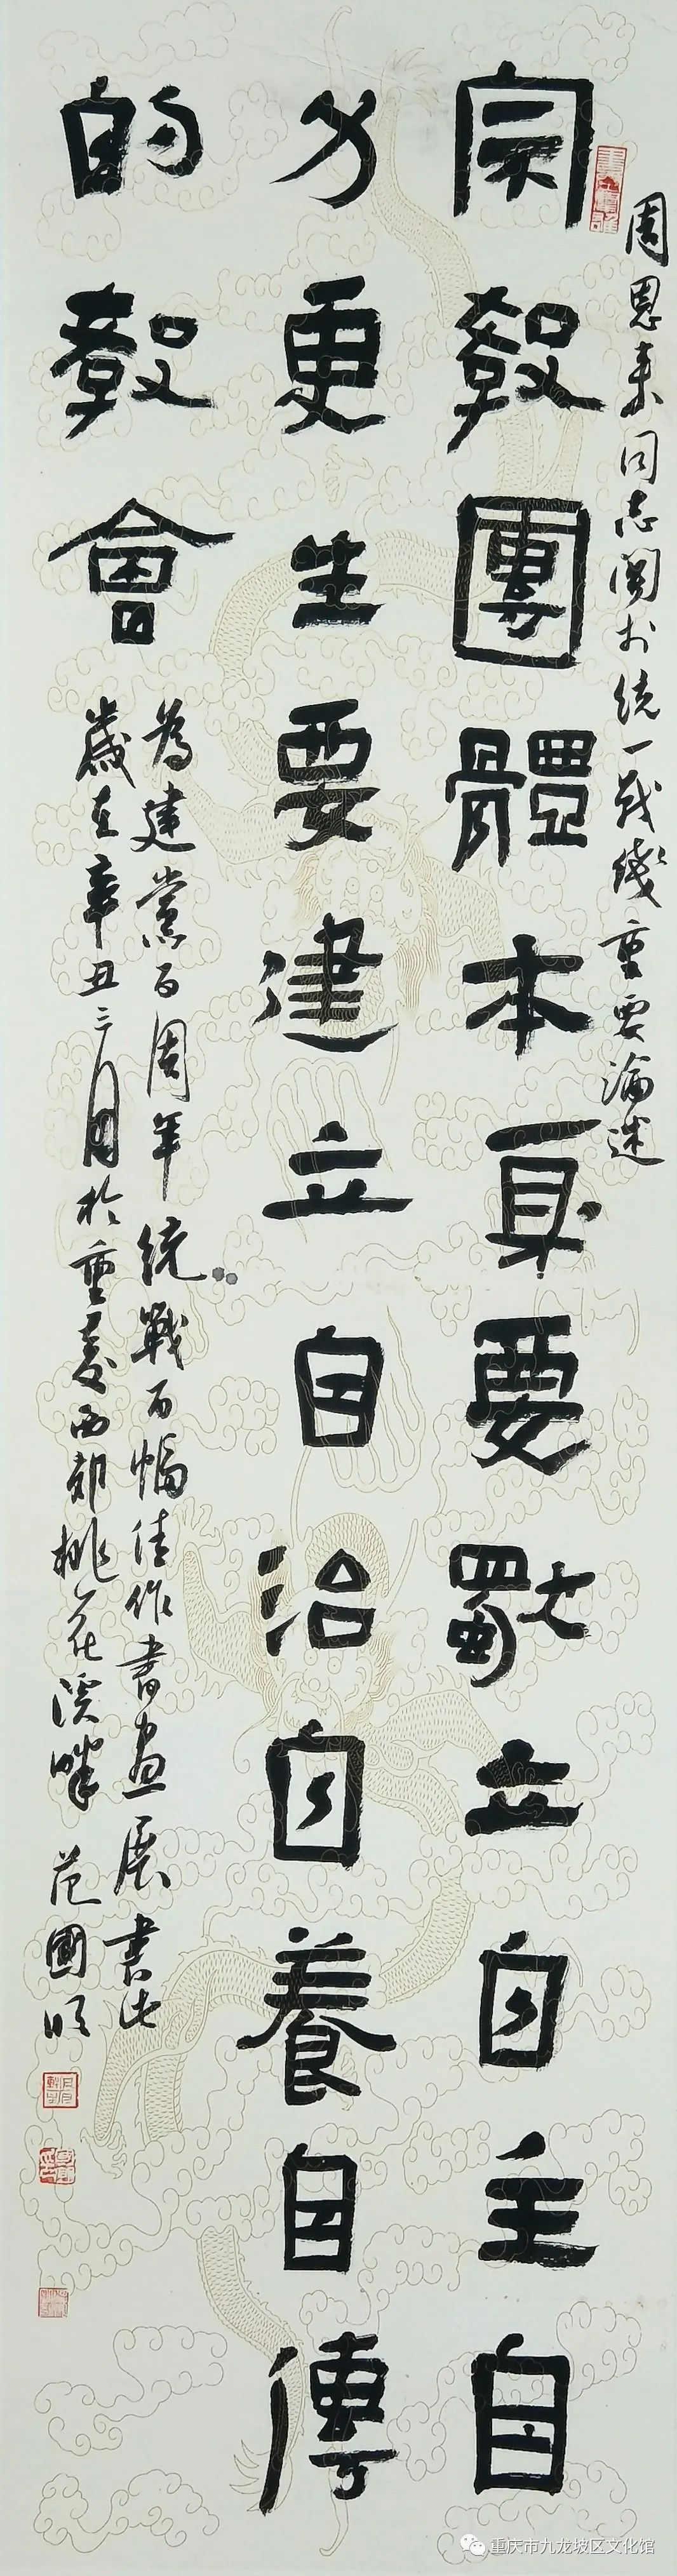 周恩来同志関於统一战线重要论述
宗教團體本身要獨立自主自
力更生要建立自治自養自傳
的教會
為建黨百周年统戰百幅佳作書画展書此
歲在辛丑三月於重慶西郊桃花溪畔 范國明
重庆市九龙坡区文化馆